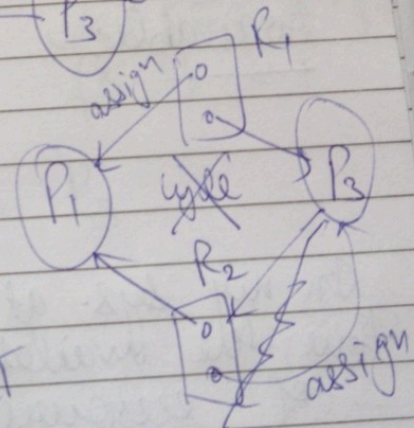 P3
R1
assign
P1
P3
R2
assign